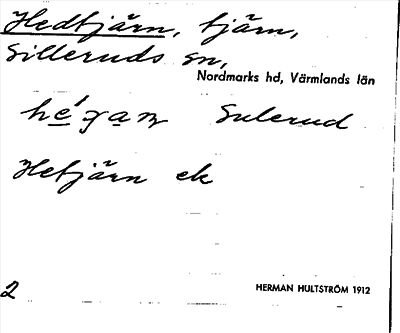 Hedtjärn, tjärn,
Silleruds sn,
Nordmarks hd, Värmlands län
Sulerud
Hetjärn ek
2
HERMAN HULTSTRÖM 1912